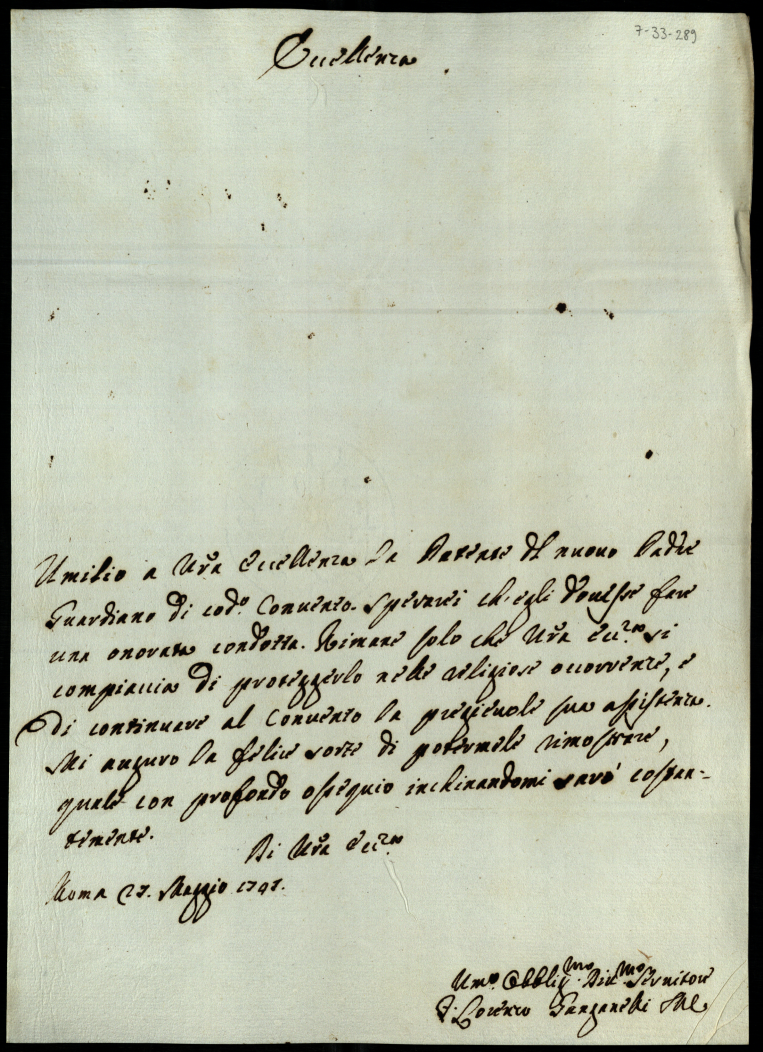 7-33-289
Eccellenza
Umilio a Vr̃a Eccellenza la Patente del nuovo Padre
Guardiano di cod.º Convento. Sperarei ch'egli dovesse fare
una onorata condotta. Rimane solo che Vr̃a Ecc.za si
compiaccia di proteggerlo nelle religiose occorrenze, e
di continuare al Convento la pregievole sua assistenza.
Mi auguro la felice sorte di potermele rimostrare,
quale con profondo ossequio inchinandomi sarò costan-
temente.
Di Vr̃a Ecc.za
Roma 27. Maggio
Um.º Obblig.mo Div.mo Servitore
F. Lorenzo Ganganelli